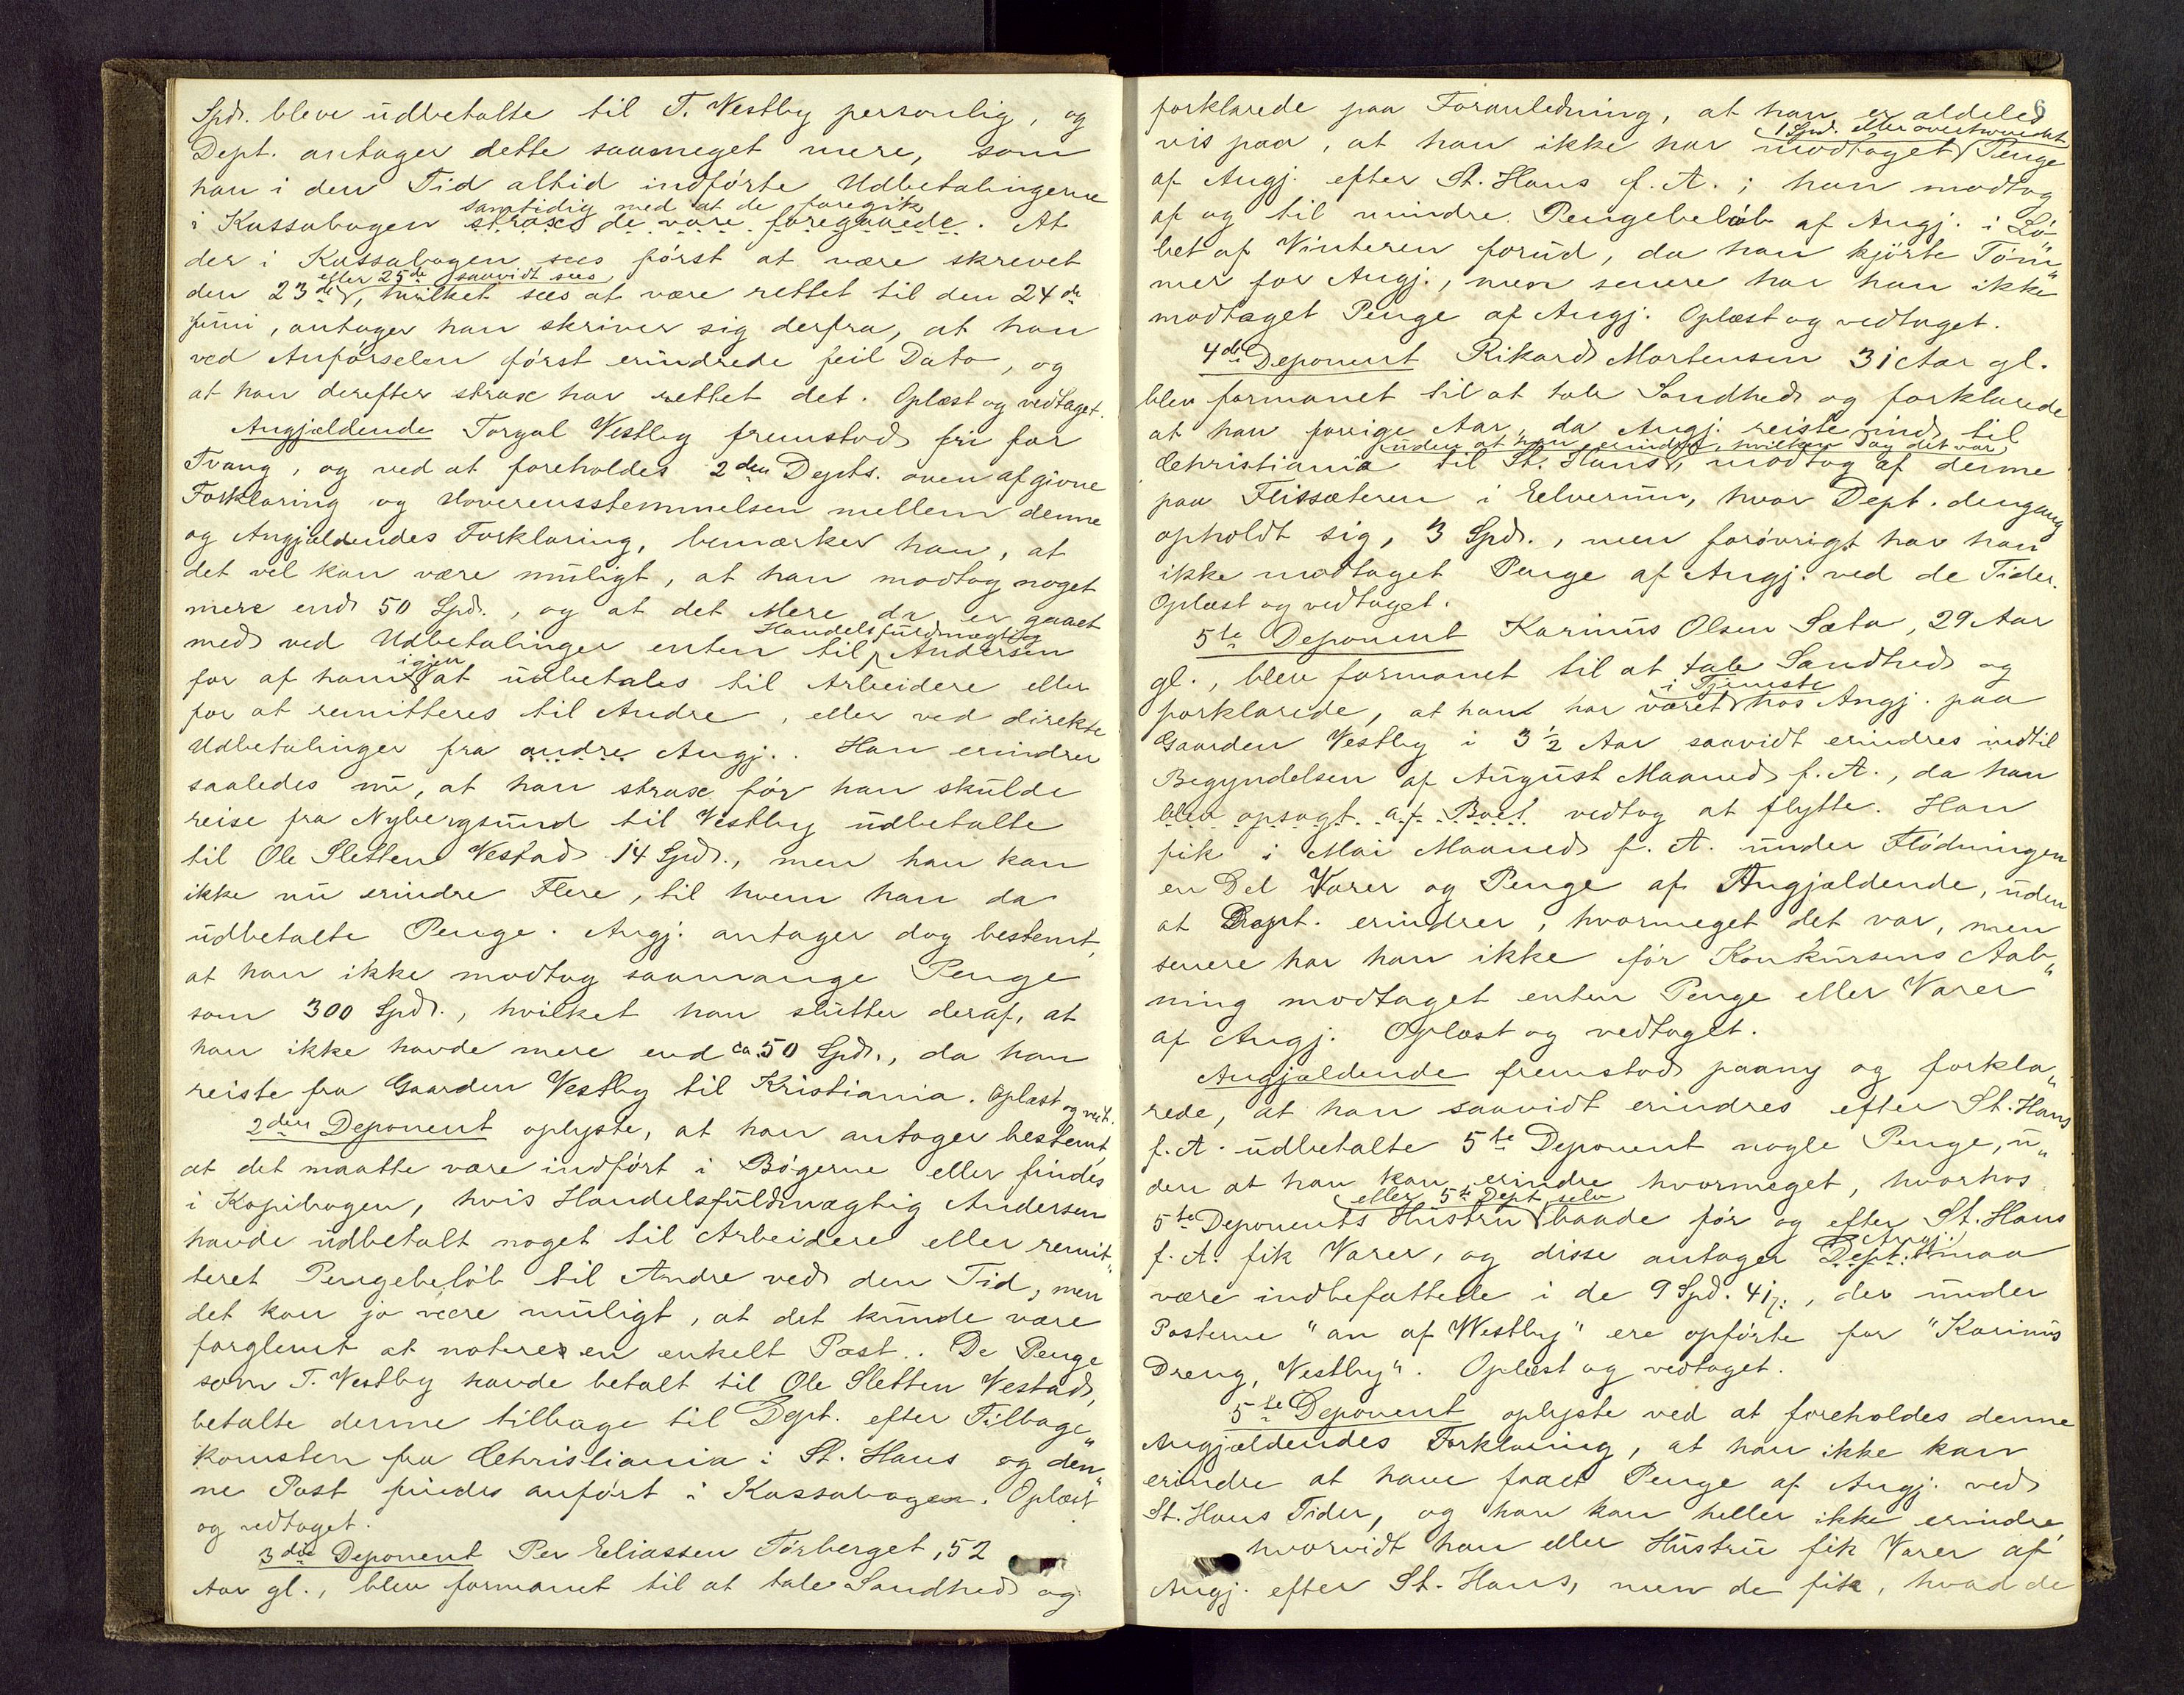 Spd. bleve udbetalte til T. Vestby personlig, og
Dept. antager dette saameget mere, som
han i den Tid altid indførte Udbetalingerne
samtidig med at de foregik
i Kassabogen strax de vare foregaaede. At
der i Kassabogen sees først at være skrevet
eller 25de saavidt sees
den 23de, hvilket sees at være rettet til den 24de
Juni, antager han skriver sig derfra, at han
ved Anførselen først erindrede feil Dato, og
at han derefter strax har rettet det. Oplæst og vedtaget.
Angjældende Torgal Vestby fremstod fri for
Tvang, og ved at foreholdes 2den Depts. oven afgivne
Forklaring og Uoverensstemmelsen mellem denne
og Angjældendes Forklaring, bemærker han, at
det vel kan være muligt, at han modtog noget
mere end 50 Spd., og at det Mere da er gaaet
Handelsfuldmægtig
med ved Udbetalinger enten til Andersen
igjen
for af ham at udbetales til Arbeidere eller
for at remitteres til Andre, eller ved direkte
Udbetalinger fra andre Angj.. Han erindrer
saaledes nu, at han strax før han skulde
reise fra Nybergsund til Vestby udbetalte
til Ole Sletten Vestad 14 Spd., men han kan
ikke nu erindre Flere, til hvem han da
udbetalte Penge. Angj. antager dog bestemt,
at han ikke modtog saamange Penge
som 300 Spd., hvilket han slutter deraf, at
han ikke havde mere end ca. 50 Spd., da han
reiste fra Gaarden Vestby til Kristiania. Oplæst og vedt.
2den Deponent oplyste, at han antager bestemt,
at det maatte være indført i Bøgerne eller findes
i Kopibogen, hvis Handelsfuldmægtig Andersen
havde udbetalt noget til Arbeidere eller remit„
teret Pengebeløb til Andre ved den Tid, men
det kan jo være muligt, at det kunde være
forglemt at noteres en enkelt Post.. De Penge
som T. Vestby havde betalt til Ole Sletten Vestad,
betalte denne tilbage til Dept. efter Tilbage„
komsten fra Christiania i St. Hans og den„
ne Post findes anført i Kassabogen. Oplæst
og vedtaget.
3die Deponent Per Eliassen Tørberget, 52
Aar gl., blev formanet til at tale Sandhed og
6
forklarede paa Foranledning, at han er aldeles
1 Spd. eller overhovedet
vis paa, at han ikke har modtaget Penge
af Angj. efter St. Hans f. A.; han modtog
af og til mindre Pengebeløb af Angj. i Lø„
bet af Vinteren forud, da han kjørte Tøm„
mer for Angj., men senere har han ikke
modtaget Penge af Angj. Oplæst og vedtaget.
4de Deponent Rikard Mortensen 31 Aar gl.
blev formanet til at tale Sandhed og forklarede
at han forrige Aar, da Angj. reiste ind til
uden at han erindrer, hvilken Dag det var
Christiania til St. Hans, modtog af denne
paa Flissæteren i Elverum, hvor Dept. dengang
opholdt sig, 3 Spd., men forøvrigt har han
ikke modtaget Penge af Angj. ved de Tider.
Oplæst og vedtaget.
5te Deponent Karinus Olsen Sæta, 29 Aar
gl., blev formanet til at tale Sandhed og
i Tjeneste
forklarede, at han har været hos Angj. paa
Gaarden Vestby i 3½ Aar saavidt erindres indtil
Begyndelsen af August Maaned f. A., da han
blev opsagt af Boet vedtog at flytte. Han
fik i Mai Maaned f. A. under Flødningen
en Del Varer og Penge af Angjældende, uden
at Dept. erindrer, hvormeget det var, men
senere har han ikke før Konkursens Aab„
ning modtaget enten Penge eller Varer
af Angj. Oplæst og vedtaget.
Angjældende fremstod paany og forkla„
rede, at han saavidt erindres efter St. Hans
f. A. udbetalte 5te Deponent nogle Penge, u„
den at han kan erindre hvormeget, hvorhos
eller 5te Dept. selv
5te Deponents Hustru baade før og efter St. Hans
Angj.
f. A. fik Varer, og disse antager Dept. maa
være indbefattede i de 9 Spd. 41 β., der under
Posterne "an af Westby" ere opførte for "Karinus
Dreng, Vestby". Oplæst og vedtaget.
5te Deponent oplyste ved at foreholdes denne
Angjældendes Forklaring, at han ikke kan
erindre at have faaet Penge af Angj. ved
St. Hans Tider, og han kan heller ikke erindre,
hvorvidt han eller Hustru fik Varer af
Angj. efter St. Hans, men de fik, hvad de